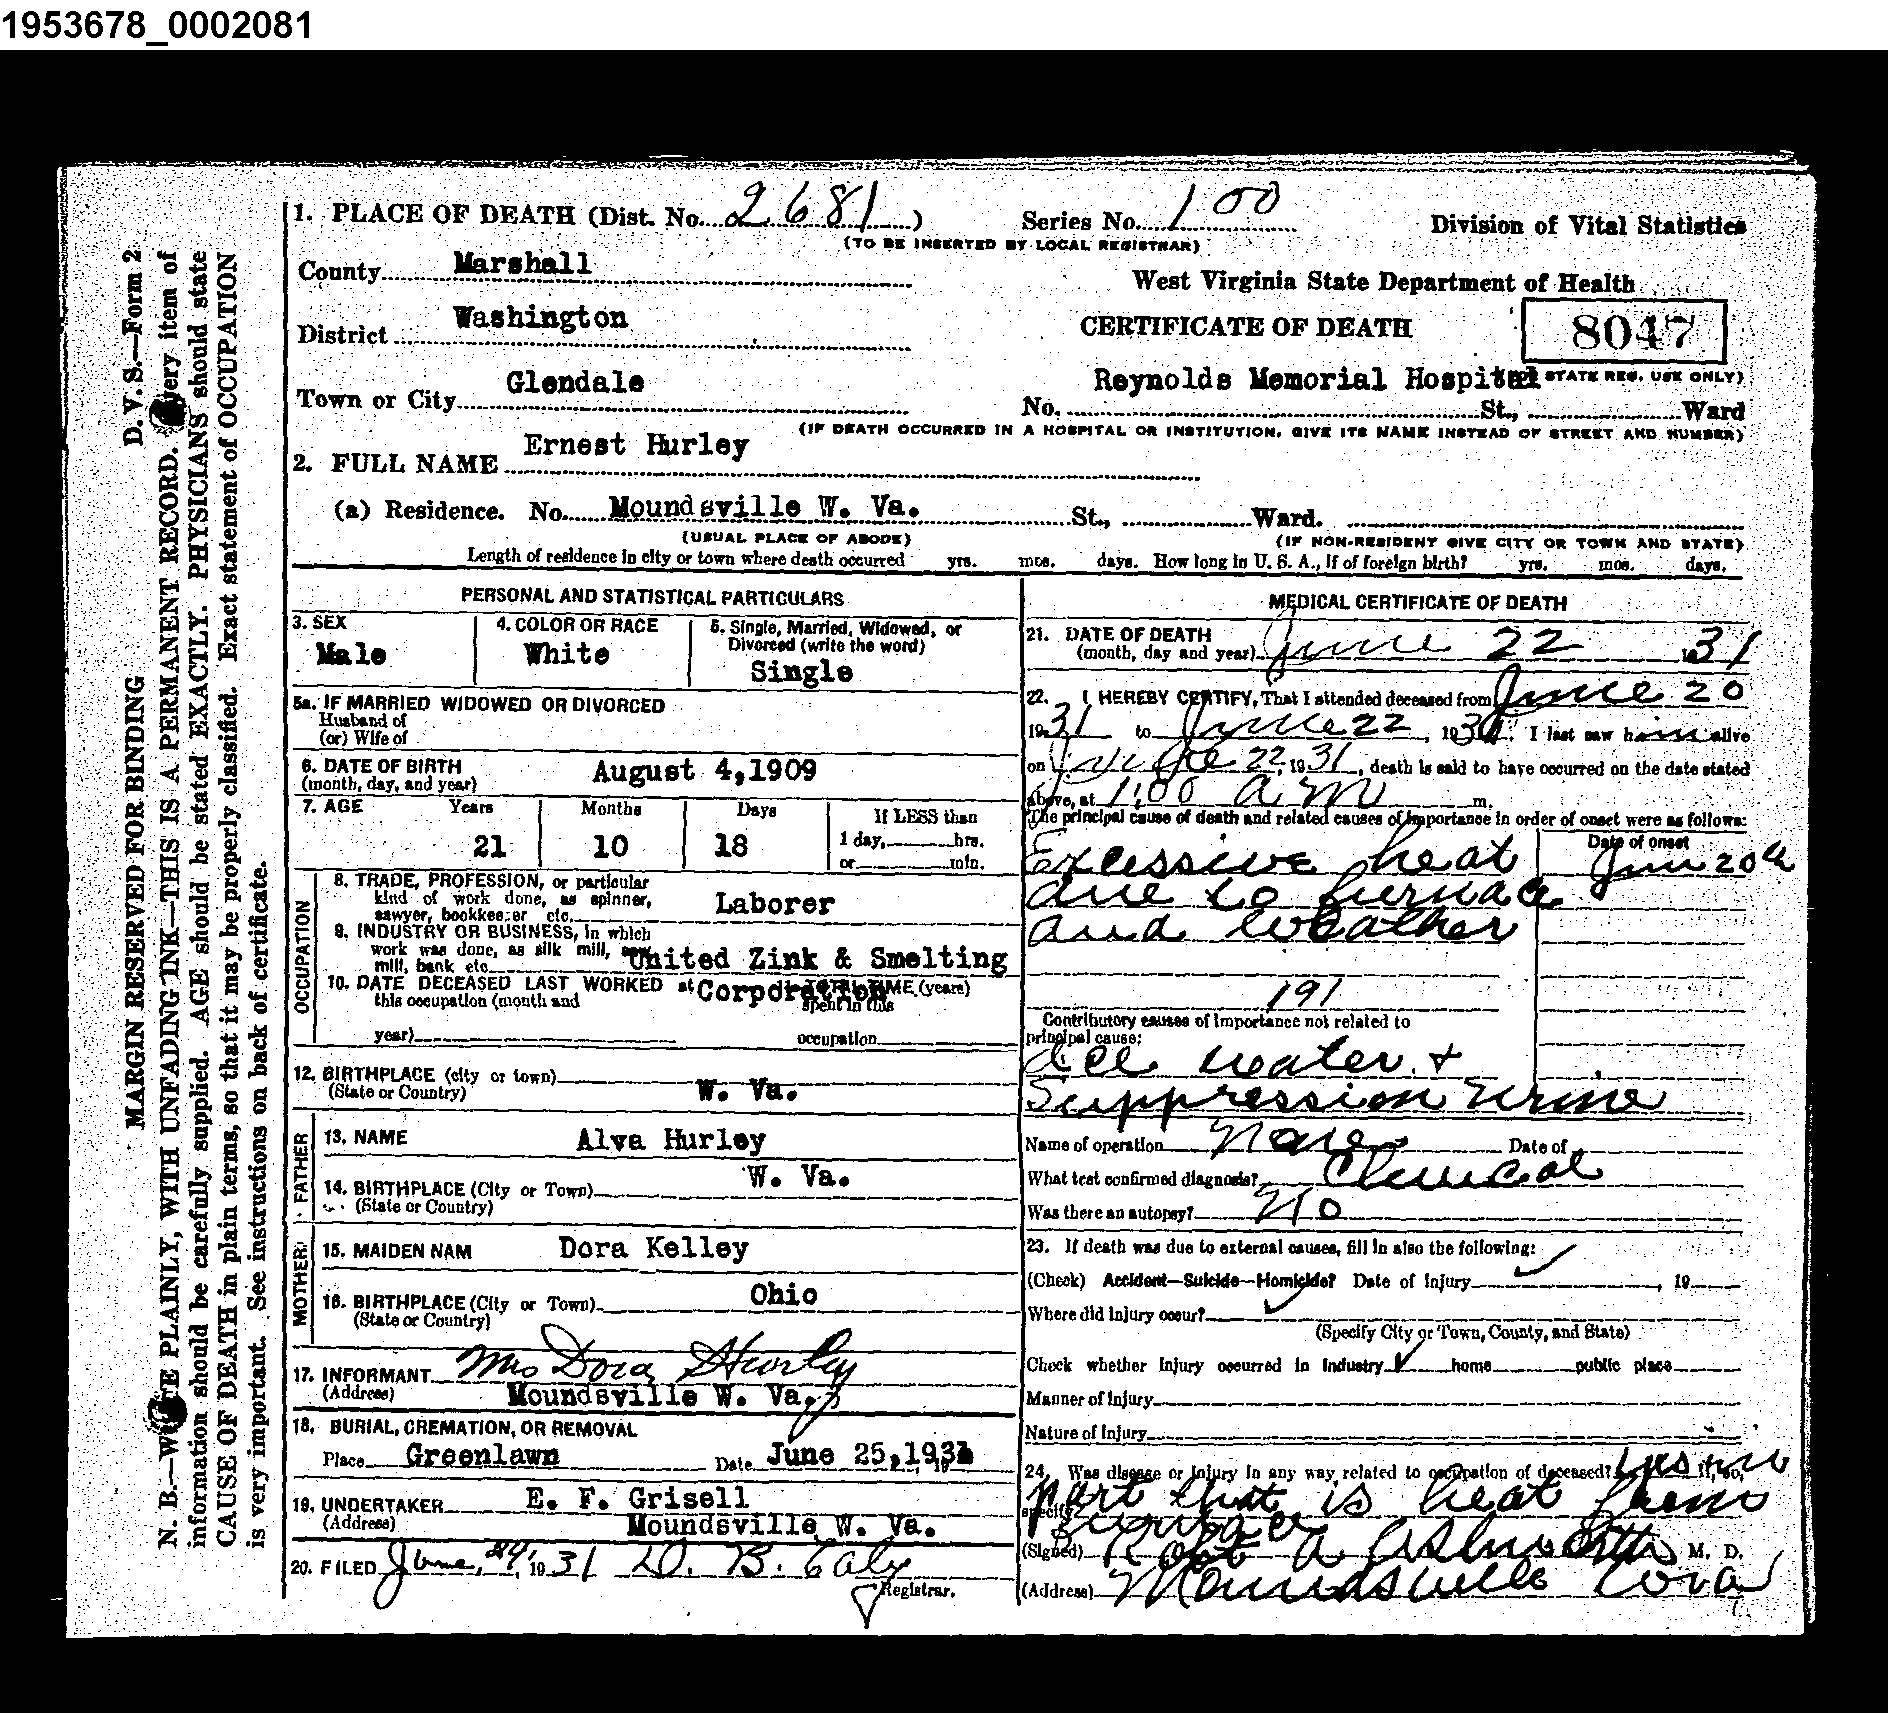 1953678_0002081
1. PLACE OF DEATH (Dist. No. 2681) Series No. 100 Division of Vital Statistics
(TO BE INSERTED BY LOCAL REGISTRAR)
County Marshall
West Virginia State Department of Health
District Washington
CERTIFICATE OF DEATH 8047
Town or City Glendale
Reynolds Memorial Hospital STATE REG. USE ONLY)
No. St., Ward
(IF DEATH OCCURRED IN A HOSPITAL OR INSTITUTION, GIVE ITS NAME INSTEAD OF STREET AND NUMBER)
2. FULL NAME Ernest Hurley
(a) Residence. No. Moundsville W. Va. St., Ward.
(USUAL PLACE OF ABODE) (IF NON-RESIDENT GIVE CITY OR TOWN AND STATE)
Length of residence in city or town where death occurred yrs. mos. days. How long in U. S. A., if of foreign birth? yrs. mos. days.
PERSONAL AND STATISTICAL PARTICULARS
3. SEX 4. COLOR OR RACE 5. Single, Married, Widowed, or
Divorced (write the word)
Male White Single
5a. IF MARRIED WIDOWED OR DIVORCED
Husband of
(or) Wife of
6. DATE OF BIRTH August 4,1909
(month, day, and year)
7. AGE Years Months Days If LESS than
21 10 18 1 day, hrs.
or min.
OCCUPATION
8. TRADE, PROFESSION, or particular
kind of work done, as spinner,
sawyer, bookkeeper etc. Laborer
9. INDUSTRY OR BUSINESS, in which
work was done, as silk mill, saw
mill, bank etc. United Zink & Smelting
10. DATE DECEASED LAST WORKED at Corporation TIME (years)
this occupation (month and spent in this
year) occupation
12. BIRTHPLACE (city or town)
(State or Country) W. Va.
FATHER
13. NAME Alva Hurley
14. BIRTHPLACE (City or Town) W. Va.
(State or Country)
MOTHER
15. MAIDEN NAM Dora Kelley
16. BIRTHPLACE (City or Town) Ohio
(State or Country)
17. INFORMANT Mrs Dora Hurley
(Address) Moundsville W. Va.
18. BURIAL, CREMATION, OR REMOVAL
Place Greenlawn Date June 25,1931
19. UNDERTAKER E. F. Grisell
(Address) Moundsville W. Va.
20. FILED June, 24, 1931 D. B. Ealy
Registrar.
MEDICAL CERTIFICATE OF DEATH
21. DATE OF DEATH
(month, day and year) June 22 1931
22. I HEREBY CERTIFY, That I attended deceased from June 20
1931 to June 22, 1931. I last saw him alive
on June 22, 1931, death is said to have occurred on the date stated
above, at 1:00 a m m.
The principal cause of death and related causes of importance in order of onset were as follows:
Date of onset
Excessive heat June 20th
due to furnace
and weather
191
Contributory causes of importance not related to
principal cause:
Ice water &
Suppression Urine
Name of operation None Date of
What test confirmed diagnosis? Clinical
Was there an autopsy? No
23. If death was due to external causes, fill in also the following:
(Check) Accident—Suicide—Homicide? Date of Injury , 19
Where did injury occur?
(Specify City or Town, County, and State)
Check whether Injury occurred in Industry ✓ home public place
Manner of Injury
Nature of Injury
24. Was disease or injury in any way related to occupation of deceased? yes in If so,
specify part that is heat from
furnace
(Signed) Robt A Ashworth M. D.
(Address) Moundsville W va
D. V. S.—Form 2
MARGIN RESERVED FOR BINDING
N. B.—WRITE PLAINLY, WITH UNFADING INK—THIS IS A PERMANENT RECORD. Every item of
information should be carefully supplied. AGE should be stated EXACTLY. PHYSICIANS should state
CAUSE OF DEATH in plain terms, so that it may be properly classified. Exact statement of OCCUPATION
is very important. See instructions on back of certificate.